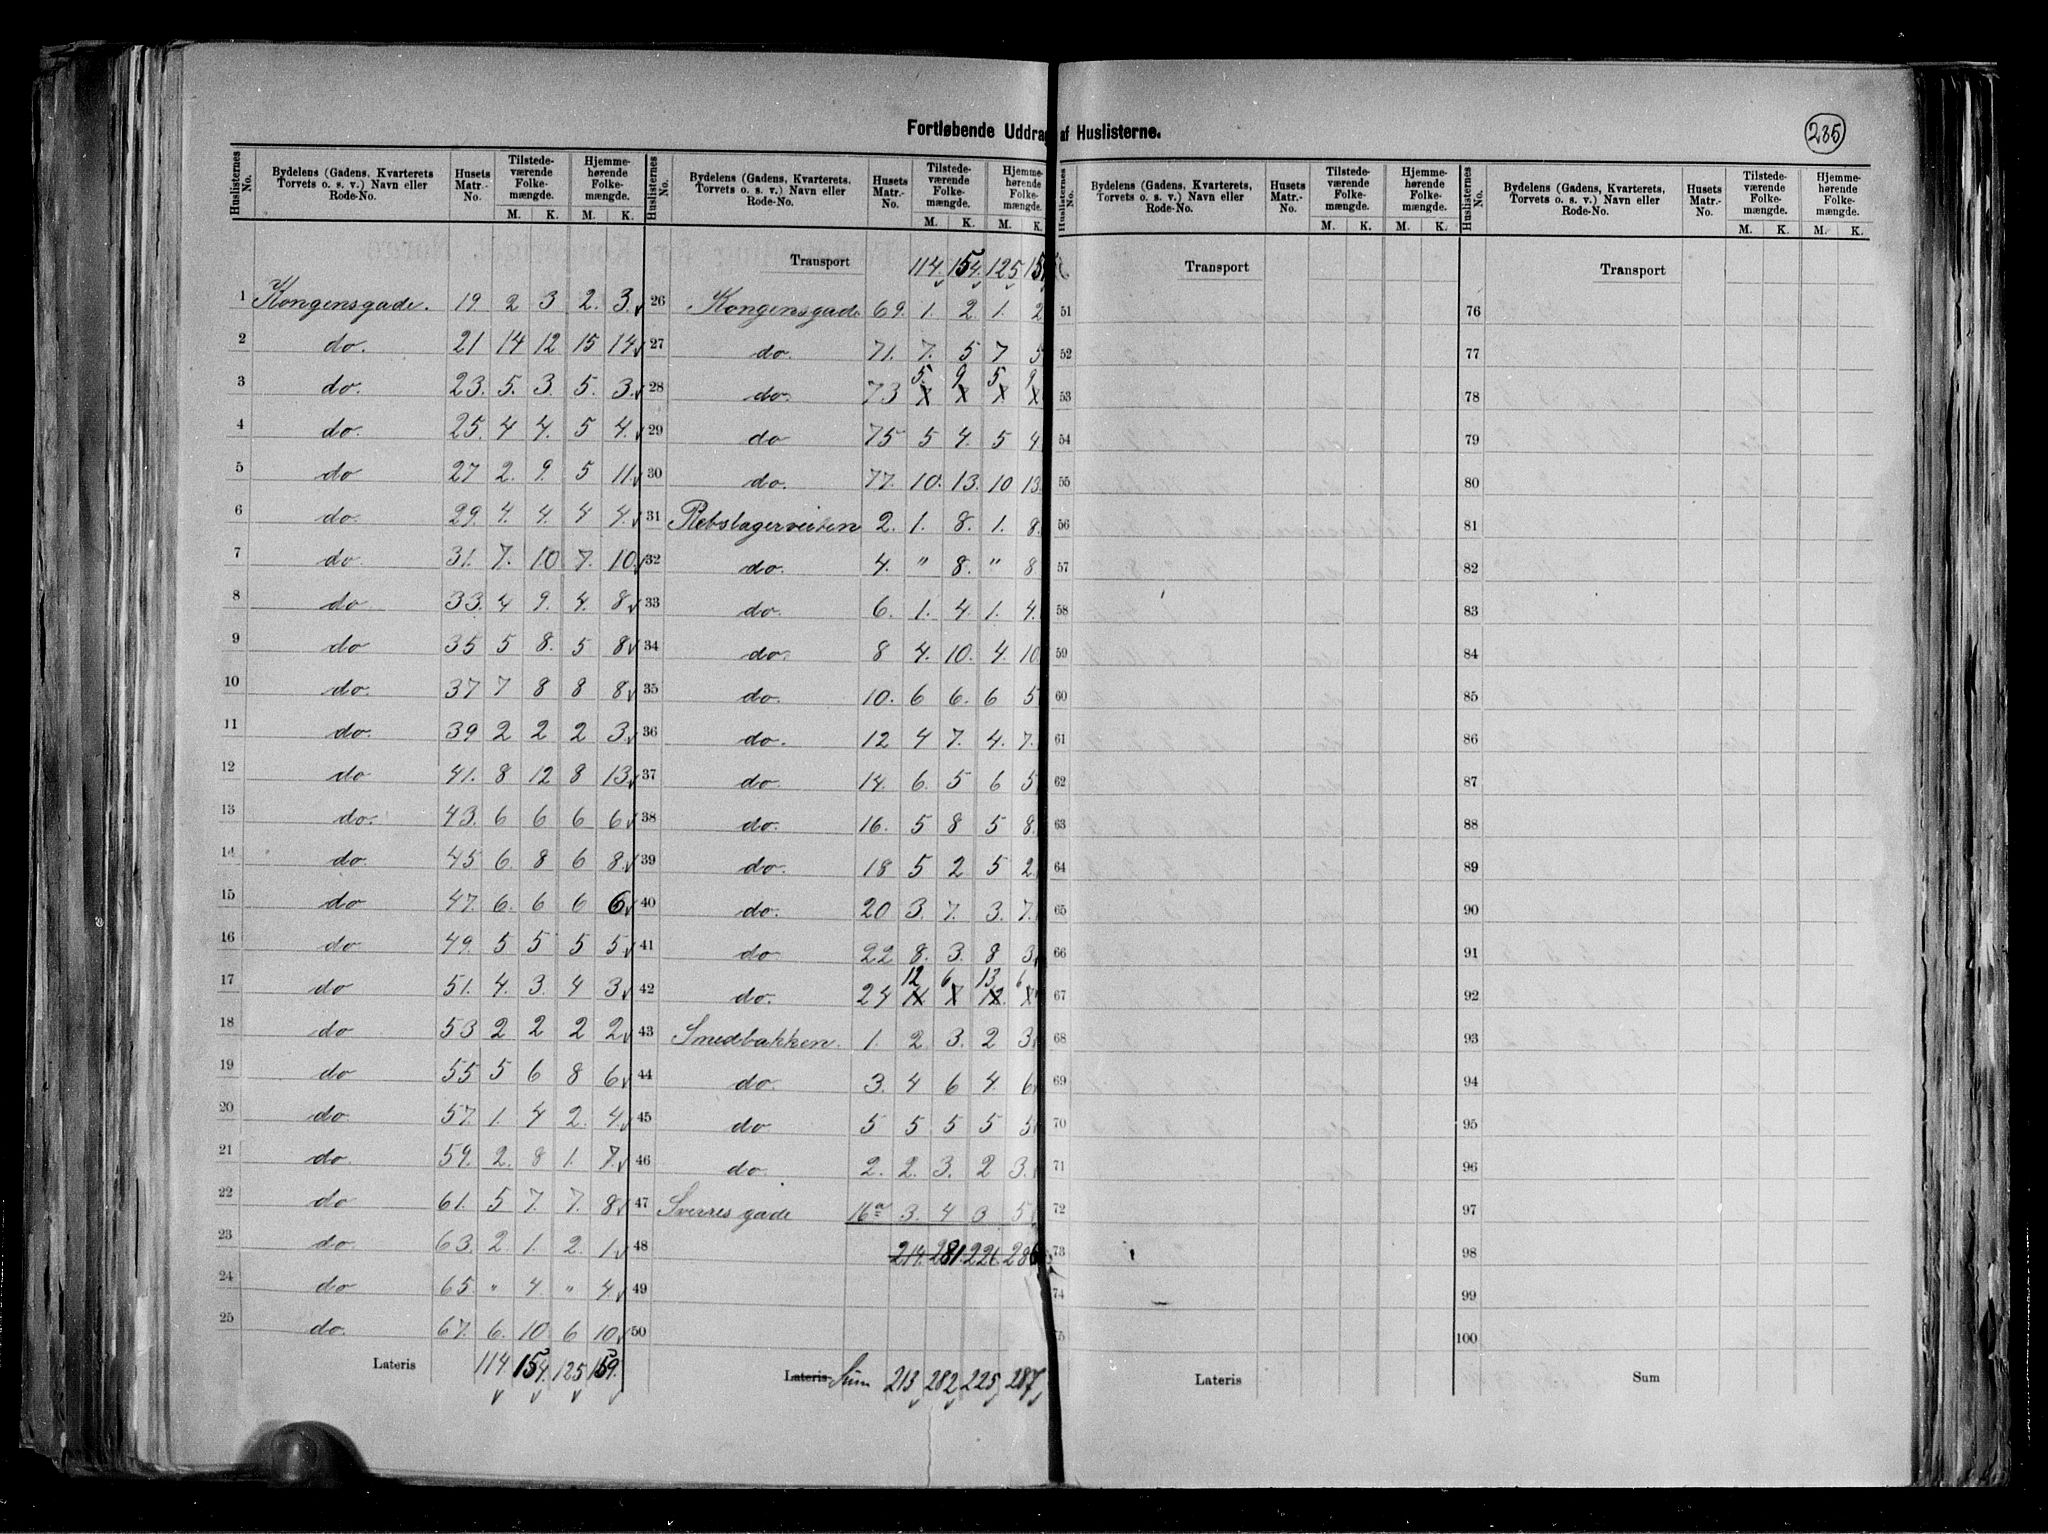 Fortløbende Uddrag af Huslisterne.
235
Huslisternes No. Bydelens (Gadens, Kvarterets, Torvets o. s. v.) Navn eller Rode-No. Husets Matr.-No. Tilstedeværende Folkemængde. M. K. Hjemmehørende Folkemængde. M. K.
1 Kongensgade. 19 2 3 2. 3.
2 do. 21 14 12 15 14
3 do 23. 5. 3. 5. 3.
4 do. 25. 4 4. 5 4.
5 do 27 2. 9. 5 11.
6 do. 29. 4. 4. 4 4.
7 do 31. 7. 10 7. 10.
8 do 33. 4 9. 4. 8
9 do 35 5 8. 5 8
10 do. 37 7 8 8 8
11 do. 39 2 2 2 3
12 do 41. 8 12 8 13
13 do. 43. 6 6 6 6
14 do. 45 6. 8 6 8.
15 do 47. 6. 6 6 6
16 do 49. 5 5 5 5
17 do 51. 4. 3. 4 3
18 do 53 2 2 2 2
19 do 55 5 6 8 6
20 do 57. 1. 4 2. 4.
21 do 59. 2. 8 1. 7.
22 do 61. 5 7. 7. 8
23 do. 63. 2. 1. 2. 1
24 do 65. " 4 " 4
25 do. 67. 6. 10. 6 10.
Lateris 114 154. 125 159.
Huslisternes No. Bydelens (Gadens, Kvarterets, Torvets o. s. v.) Navn eller Rode-No. Husets Matr.-No. Tilstedeværende Folkemængde. M. K. Hjemmehørende Folkemængde. M. K.
Transport 114. 154. 125
26 Kongensgade 69. 1. 2. 1. 2
27 do. 71. 7. 5 7 5
28 do. 73 5. 9 5 9
29 do 75 5 4. 5 4
30 do. 77. 10. 13. 10 13.
31 Rebslagerveiten 2. 1. 8. 1. 8.
32 do. 4. " 8. " 8
33 do. 6. 1. 4. 1. 4.
34 do. 8 4. 10. 4. 10
35 do. 10. 6 6. 6 5
36 do. 12 4 7. 4. 7.
37 do. 14. 6. 5 6 5
38 do. 16. 5 8 5 8.
39 do. 18 5 2 5 2
40 do. 20 3. 7. 3. 7.
41 do. 22 8. 3. 8 3
42 do. 24 12 6 13. 6
43 Smedbakken. 1. 2 3. 2 3
44 do. 3. 4 6 4. 6
45 do 5 5 5 5 5
46 do. 2. 2. 3. 2 3.
47 Sverres gade 16a 3. 4 3. 5
48 214. 281. 226 286
49
50
Lateris Sum 213 282 225 287
Huslisternes No. Bydelens (Gadens, Kvarterets, Torvets o. s. v.) Navn eller Rode-No. Husets Matr.-No. Tilstedeværende Folkemængde. M. K. Hjemmehørende Folkemængde. M. K.
Transport
51
52
53
54
55
56
57
58
59
60
61
62
63
64
65
66
67
68
69
70
71
72
73
74
75
Lateris
Huslisternes No. Bydelens (Gadens, Kvarterets, Torvets o. s. v.) Navn eller Rode-No. Husets Matr.-No. Tilstedeværende Folkemængde. M. K. Hjemmehørende Folkemængde. M. K.
Transport
76
77
78
79
80
81
82
83
84
85
86
87
88
89
90
91
92
93
94
95
96
97
98
99
100
Sum